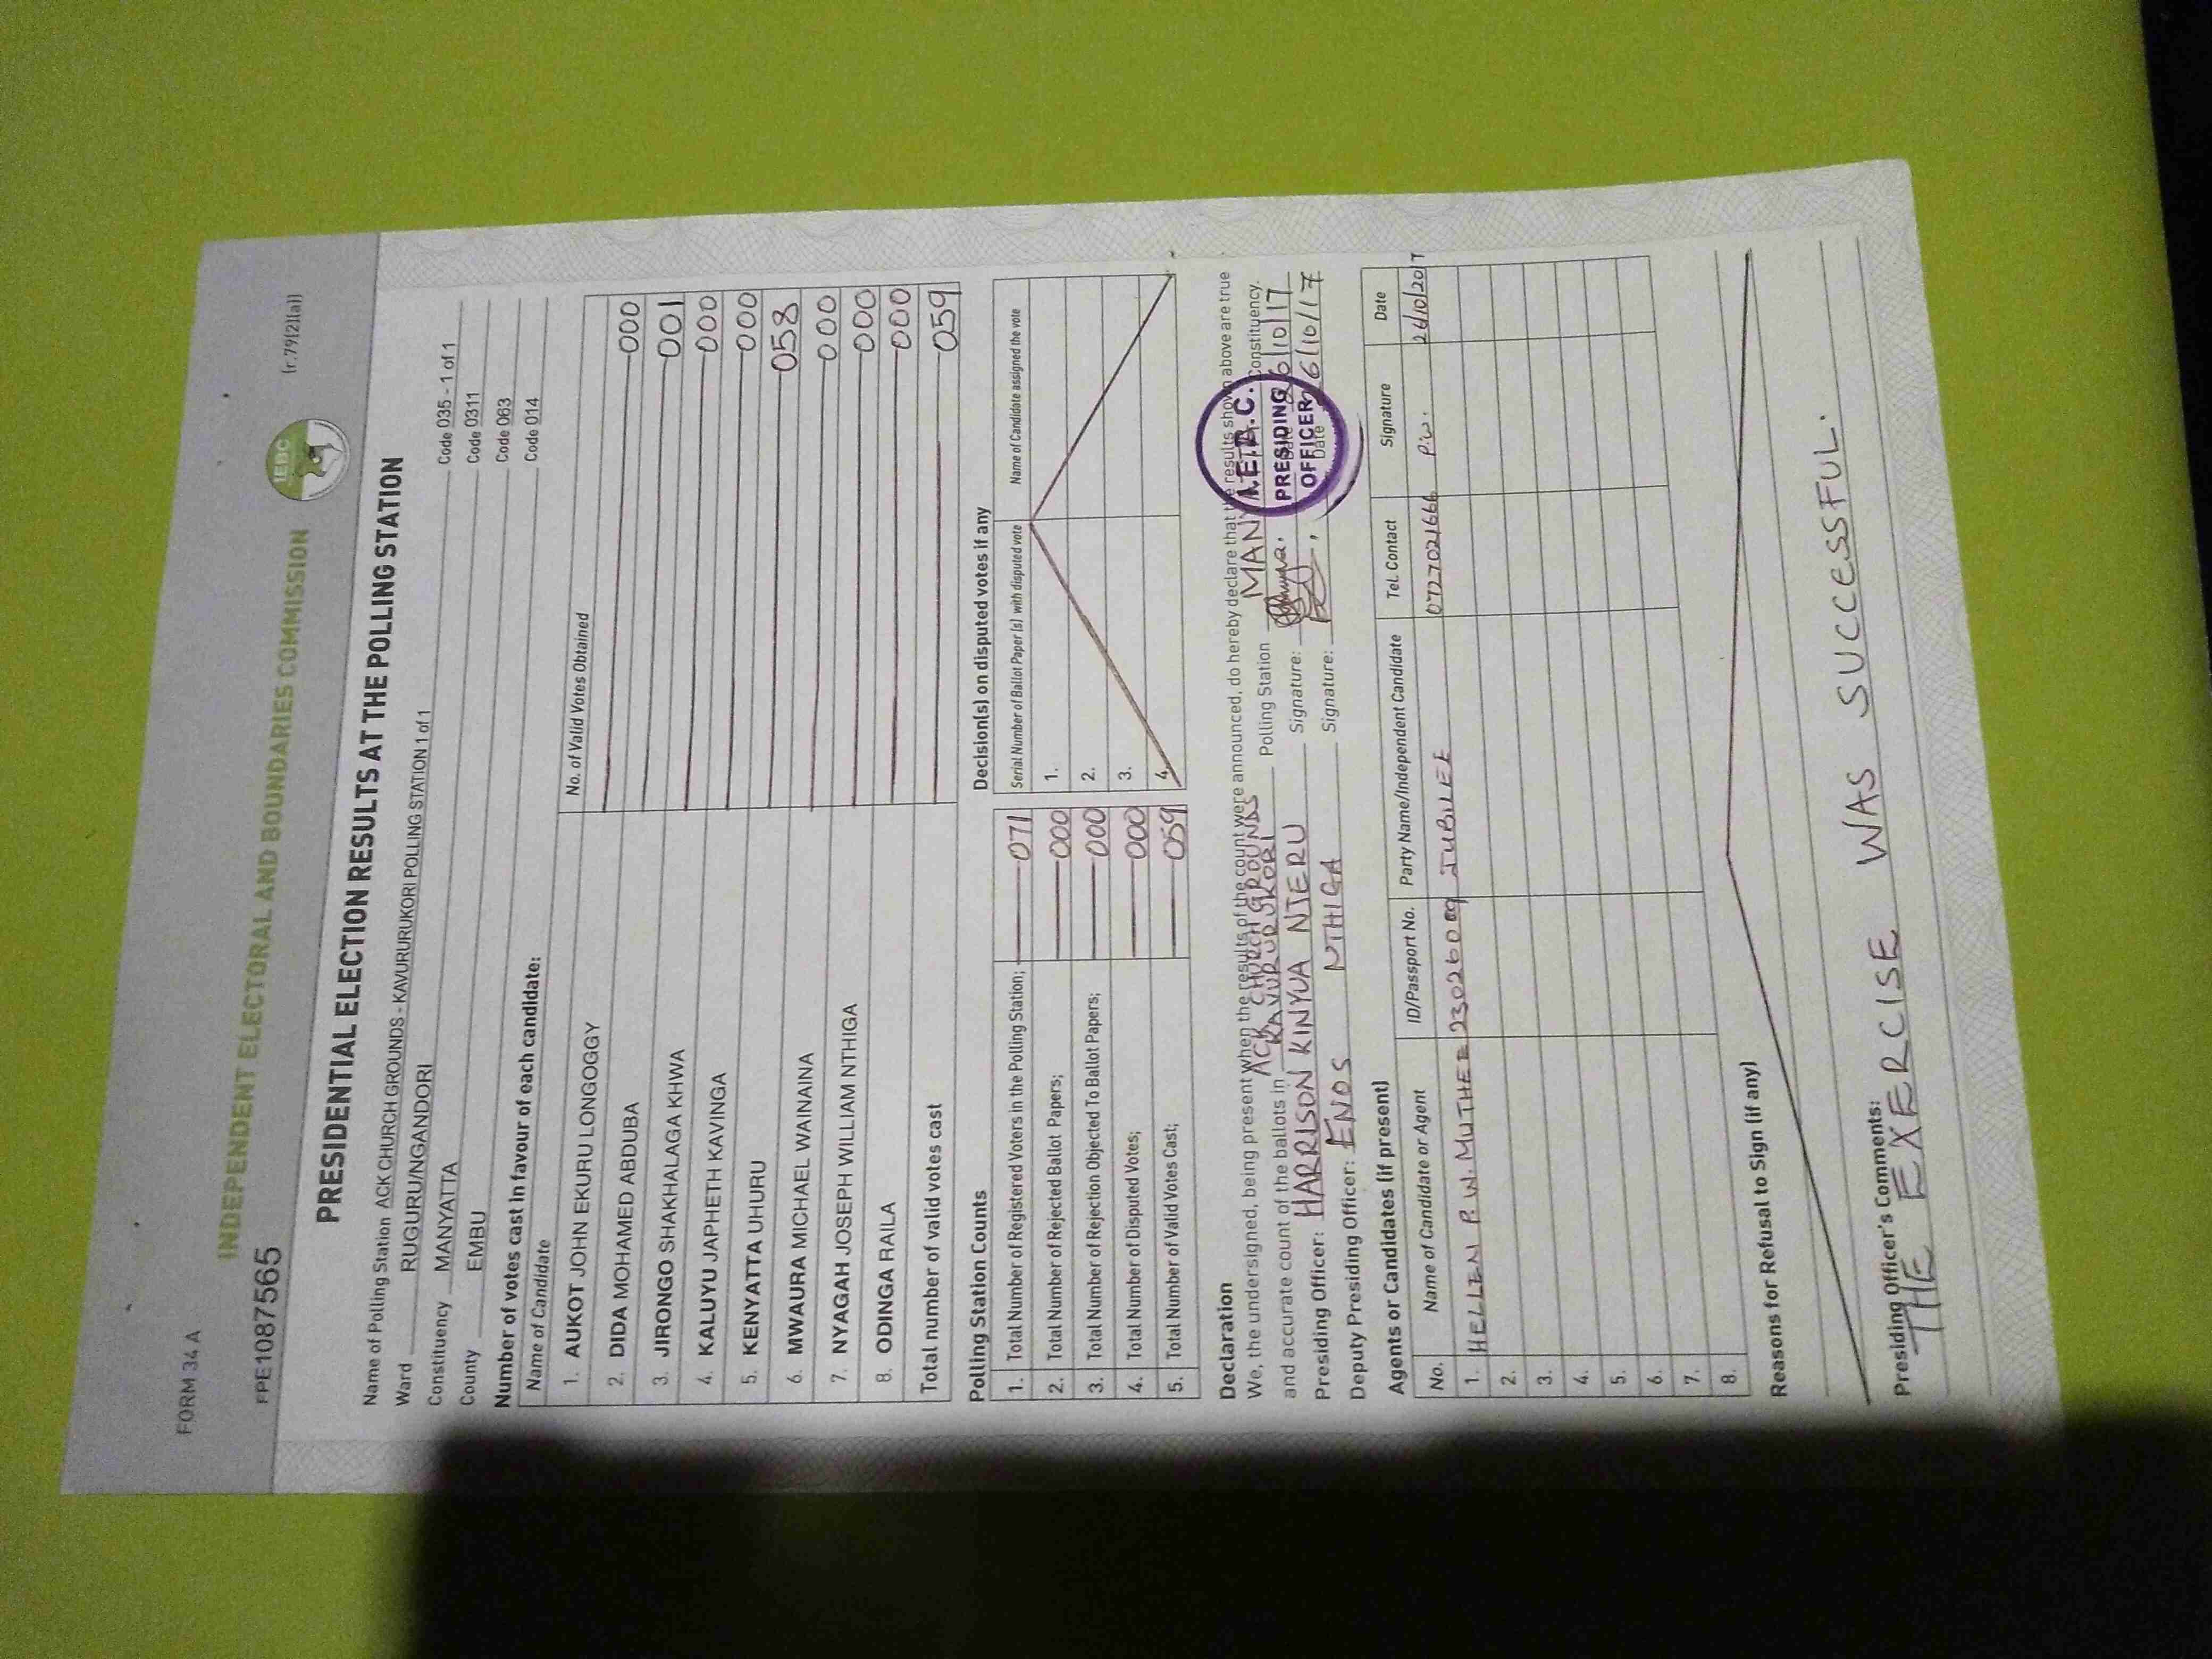 FORM 34 A
INDEPENDENT ELECTORAL AND BOUNDARIES COMMISSION
IEBC
FPE1087565
(r.79(2)(a))
PRESIDENTIAL ELECTION RESULTS AT THE POLLING STATION
Name of Polling Station ACK CHURCH GROUNDS - KAVURURUKORI POLLING STATION 1 of 1 Code 035 - 1 of 1
Ward RUGURU/NGANDORI Code 0311
Constituency MANYATTA Code 063
County EMBU Code 014
Number of votes cast in favour of each candidate:
Name of Candidate No. of Valid Votes Obtained
1. AUKOT JOHN EKURU LONGOGGY 000
2. DIDA MOHAMED ABDUBA 001
3. JIRONGO SHAKHALAGA KHWA 000
4. KALUYU JAPHETH KAVINGA 000
5. KENYATTA UHURU 058
6. MWAURA MICHAEL WAINAINA 000
7. NYAGAH JOSEPH WILLIAM NTHIGA 000
8. ODINGA RAILA 000
Total number of valid votes cast 059
Polling Station Counts
1. Total Number of Registered Voters in the Polling Station; 071
2. Total Number of Rejected Ballot Papers; 000
3. Total Number of Rejection Objected To Ballot Papers; 000
4. Total Number of Disputed Votes; 000
5. Total Number of Valid Votes Cast; 059
Decision(s) on disputed votes if any
Serial Number of Ballot Paper (s) with disputed vote Name of Candidate assigned the vote
1.
2.
3.
4.
Declaration
We, the undersigned, being present when the results of the count were announced, do hereby declare that the results shown above are true
and accurate count of the ballots in ACK CHURCH GROUNDS KAVURURUKORI Polling Station MANYATTA Constituency.
Presiding Officer: HARRISON KINYUA NJERU Signature: Date 26/10/17
Deputy Presiding Officer: ENOS NTHIGA Signature: Date 26/10/17
I.E.B.C.
PRESIDING
OFFICER
Agents or Candidates (if present)
No. Name of Candidate or Agent ID/Passport No. Party Name/Independent Candidate Tel. Contact Signature Date
1. HELLEN P. W. MUTHEE 23026009 JUBILEE 0727021666 P.W. 26/10/2017
2.
3.
4.
5.
6.
7.
8.
Reasons for Refusal to Sign (if any)
Presiding Officer's Comments:
THE EXERCISE WAS SUCCESSFUL.